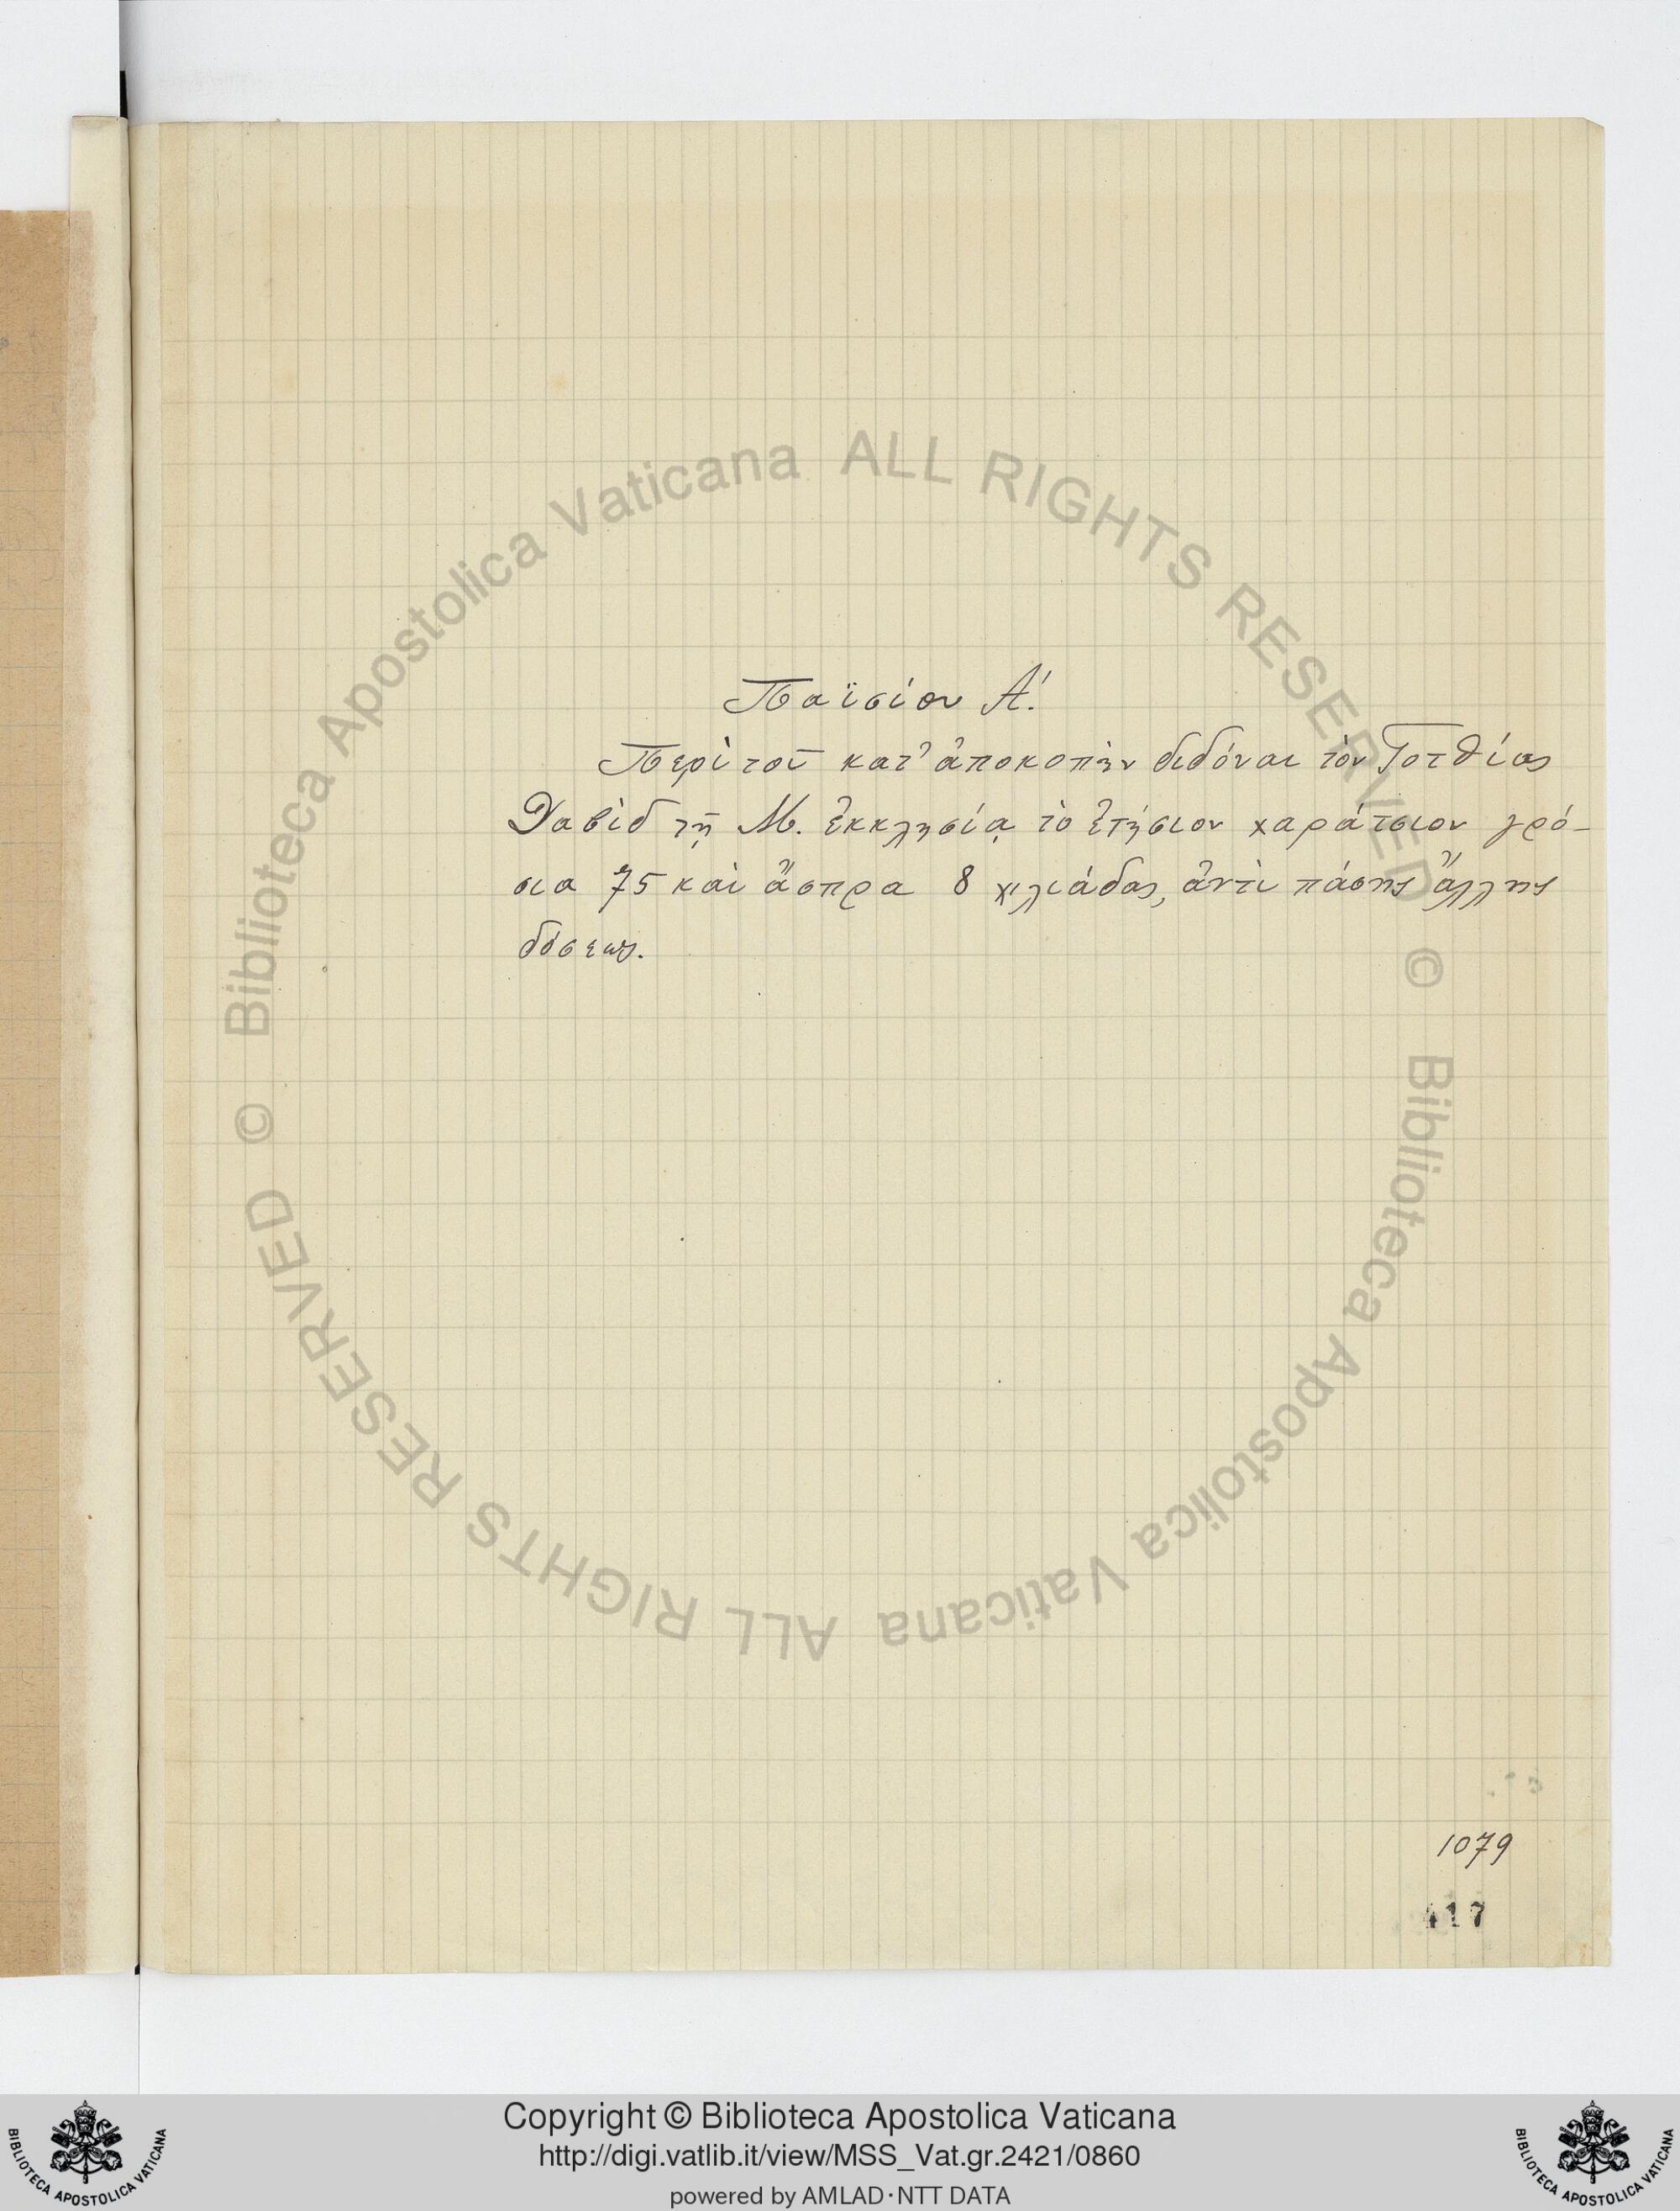 Παϊσίου Α΄.
Περὶ τοῦ κατ' ἀποκοπὴν διδόναι τὸν Γοτθίας
Δαβὶδ τῇ Μ. ἐκκλησίᾳ τὸ ἐτήσιον χαράτσιον γρό-
σια 75 καὶ ἄσπρα 8 χιλιάδας, ἀντὶ πάσης ἄλλης
δόσεως.
1079
417
© Biblioteca Apostolica Vaticana ALL RIGHTS RESERVED
© Biblioteca Apostolica Vaticana ALL RIGHTS RESERVED
Copyright © Biblioteca Apostolica Vaticana
http://digi.vatlib.it/view/MSS_Vat.gr.2421/0860
powered by AMLAD·NTT DATA
BIBLIOTECA APOSTOLICA VATICANA
BIBLIOTECA APOSTOLICA VATICANA